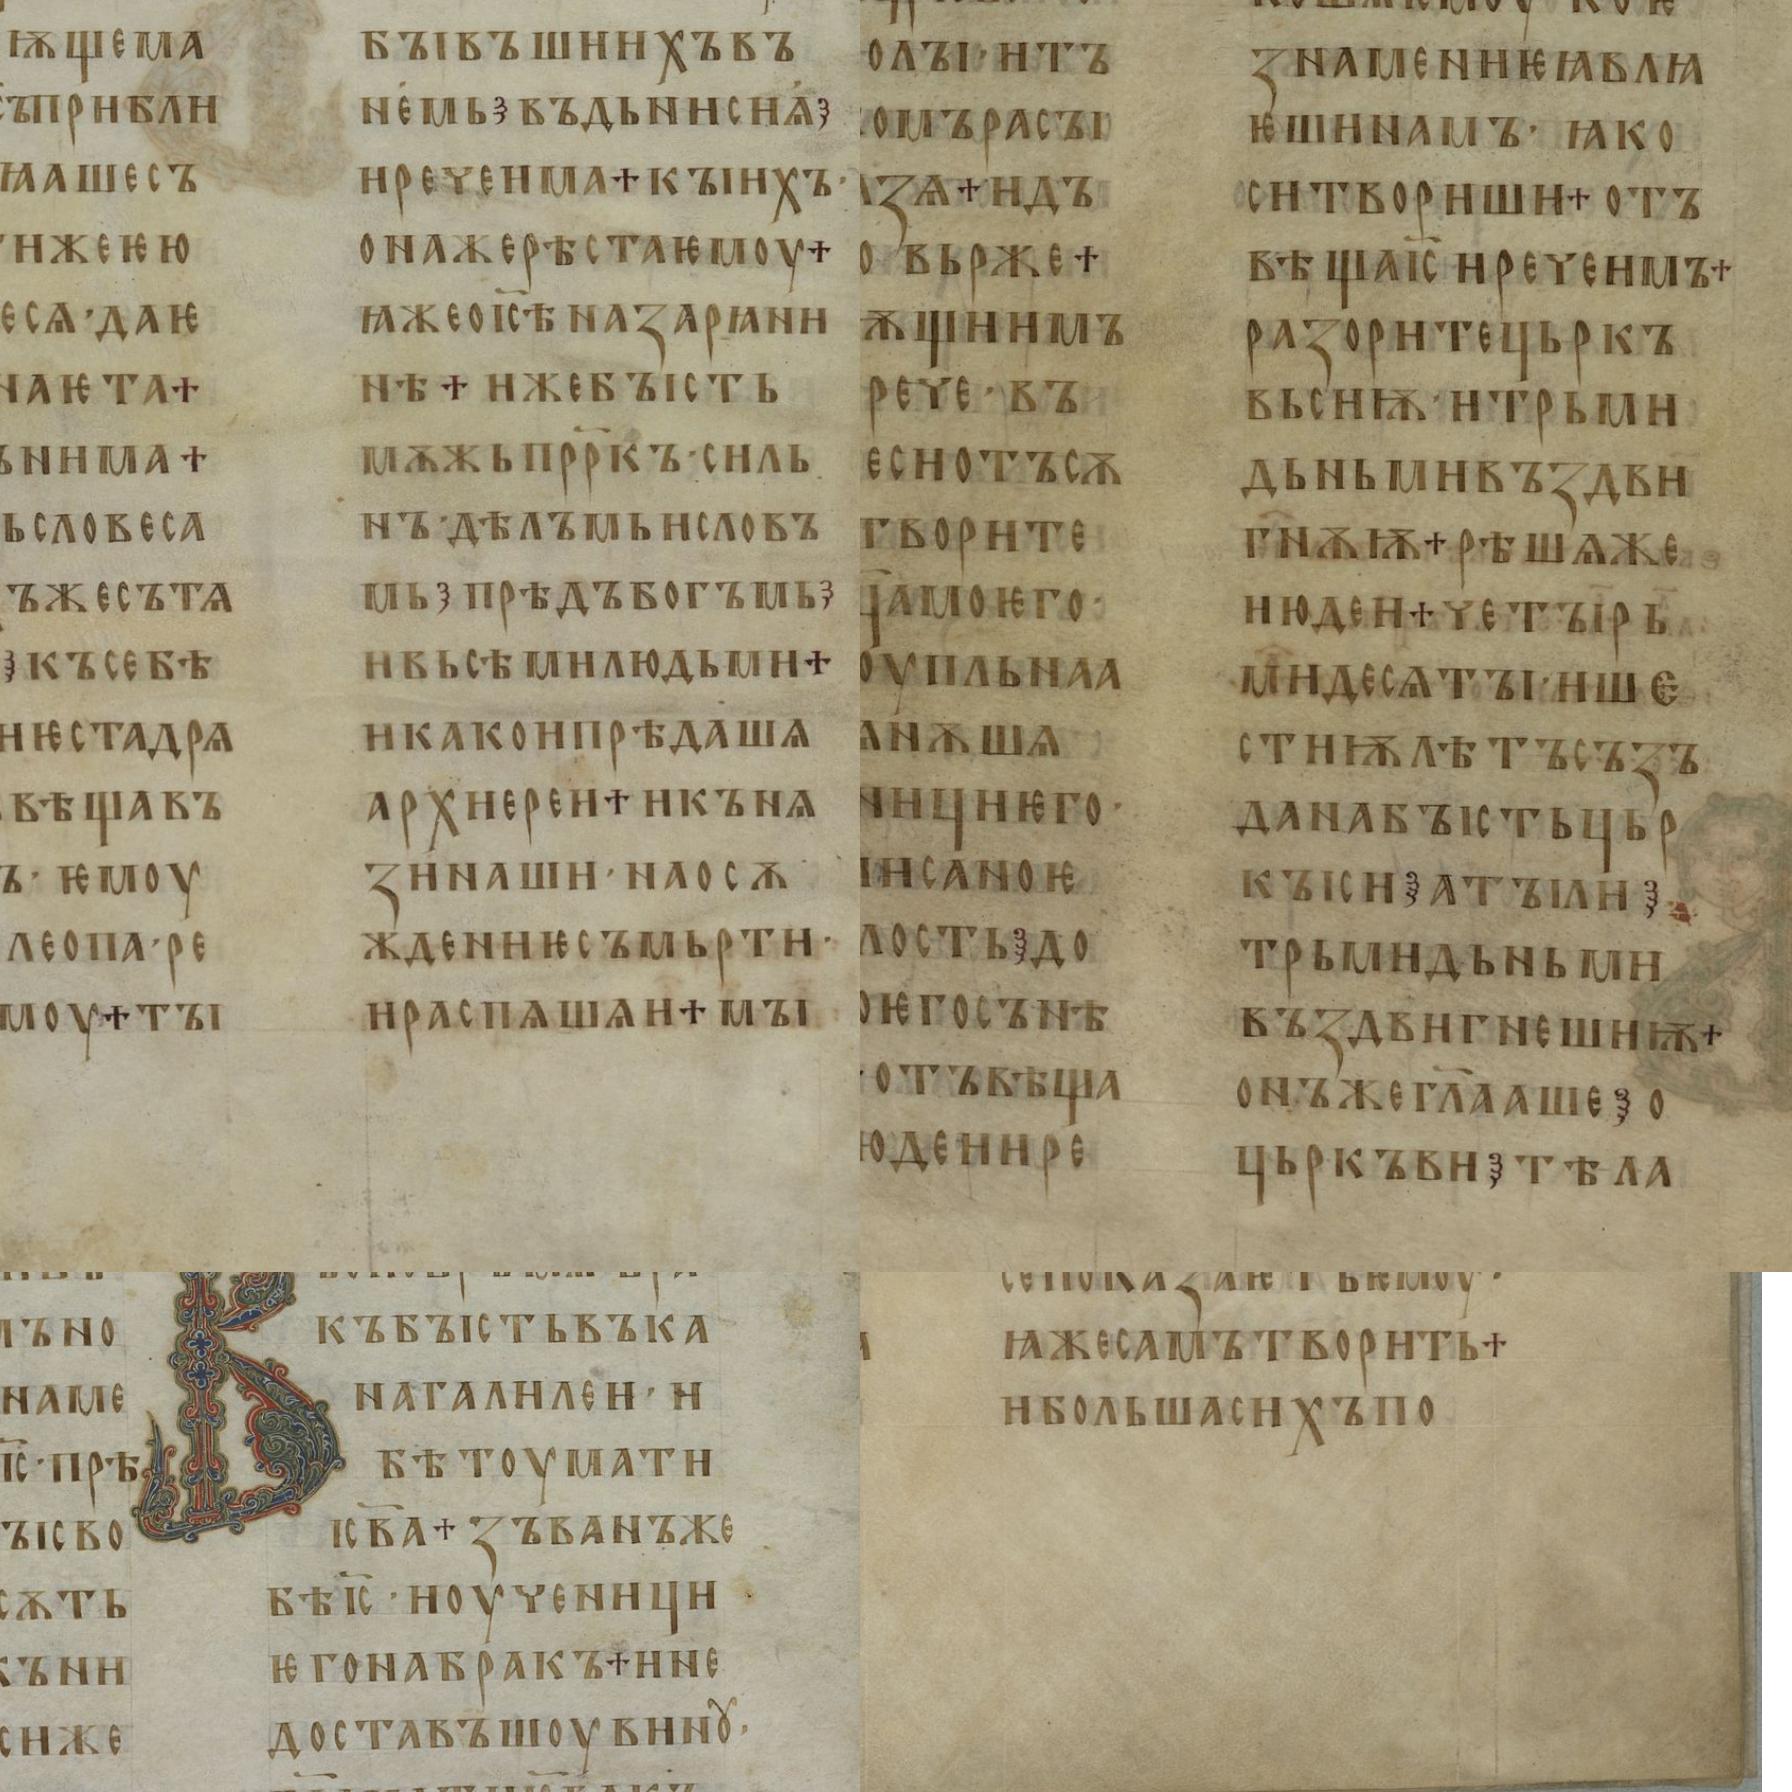 ѭщема
съприбли
ꙗашесѧ
ижеѥю
есѧ·даѥ
наѥта+
ънима+
ьсловеса
ъжесътѧ
ꙁкъсебѣ
иѥстадрѧ
вѣщавъ
ъ·ѥмоу
леопа·ре
моу+тꙑ
бꙑвъшиихъвъ
немьꙁвъдьнисиѧꙁ
иреченма+кꙑихъ·
онажерѣстаѥмоу+
ꙗжеоіс҃ѣназарꙗни
нѣ+ижебꙑсть
мѫжьпрр҃къ·силь
нъ·дѣлъмьисловъ
мьꙁпрѣдъбогъмьꙁ
ивьсѣмилюдьми+
икаконпрѣдашѧ
архиереи+икънѧ
ꙁинаши·наосѫ
ждениѥсъмьрти·
ираспѧшѧи+мꙑ
олꙑ·итъ
омърасꙑ
ꙁѧ+идъ
о вьрже+
ѫщиимъ
рече·въ
еснотъсѫ
творите
цамоѥго·
оупльнаа
анѫшѧ
ициѥго·
исаноѥ
лостьꙁдо
оѥгосънѣ
·отъвѣща
юдеиире
ꙁнамениѥꙗвлꙗ
ѥшинамъ· ꙗко
ситвориши+отъ
вѣщаіс҃иреченмъ+
раꙁоритецьркъ
вьсиѭ·итрьми
дьньмивъꙁдви
гнѫѭ+рѣшѧже
июдеи+четꙑрь
мидесѧтꙑ·ише
стиѭлѣтъсъꙁъ
данабꙑстьцьр
къісиꙁатꙑлиꙁ
трьмидьньми
въꙁдвигнешиѭ+
онъжегл҃аашеꙁо
цьркъвиꙁтѣла
лъно
наме
іс҃·прѣ
ꙑсво
сѫть
къни
сиже
къбꙑстьвъка
нагалилеи·и
бѣтоумати
ісв҃а+ꙁъванъже
бѣіс҃·иоученици
ѥгонабракъ+ине
доставъшоувинꙋ·
сепокаꙁаѥтьѥмоу·
ꙗжесамътворить+
ибольшасихъпо